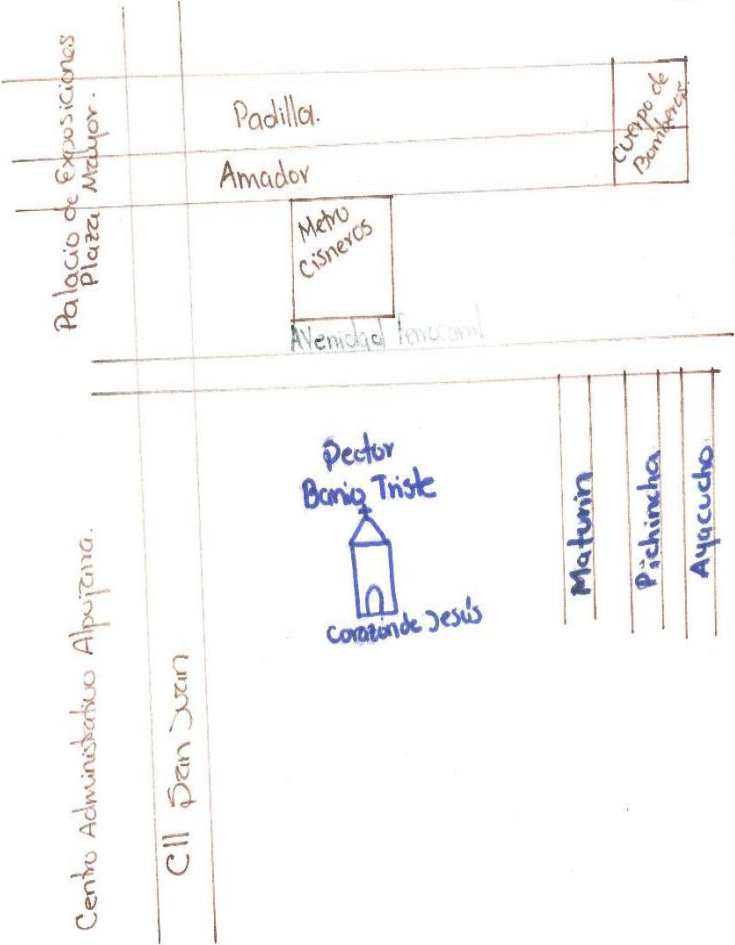 Palacio de Exposiciones
Plaza Mayor.
Padilla.
Cuerpo de
Bomberos.
Amador
Metro
Cisneros
Avenidad Ferrocarril
Sector
Barrio Triste
Corazón de Jesús
Maturin
Pichincha
Ayacucho
Centro Administrativo Alpujarra.
Cll San Juan